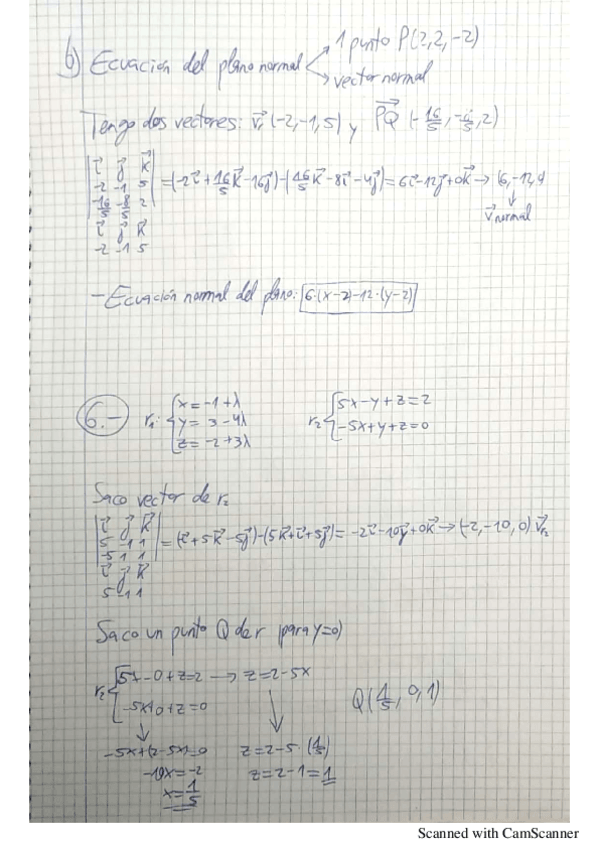 b) Ecuación del plano normal → 1 punto P(2,2,-2)
→ vector normal
Tengo dos vectores: v₁(-2,-1,5) y PQ(-16/5, -8/5, 2)
| i j k |
| -2 -1 5 | = (-2i + 16/5 k - 16j) - (16/5 k - 8i - 4j) = 6i - 12j + 0k → (6, -12,
| -16/5 -8/5 2 |
i j k
-2 -1 5
v normal
- Ecuación normal del plano: 6·(x-2)-12·(y-2)
6.- r₁: { x = -1+λ
y = 3-4λ
z = -2+3λ
r₂ { 5x-y+z=2
-5x+y+z=0
Saco vector de r₂
| i j k |
| 5 -1 1 | = (-i+5k-5j)-(5k+i+5j) = -2i-10j+0k → (-2,-10,0) v r₂
| -5 1 1 |
i j k
5 -1 1
Saco un punto Q de r (para y=0)
r₂ { 5x-0+z=2 → z=2-5x
-5x+0+z=0
Q(1/5, 0, 1)
-5x+(2-5x)=0
z=2-5·(1/5)
-10x=-2
z=2-1=1
x=1/5
Scanned with CamScanner